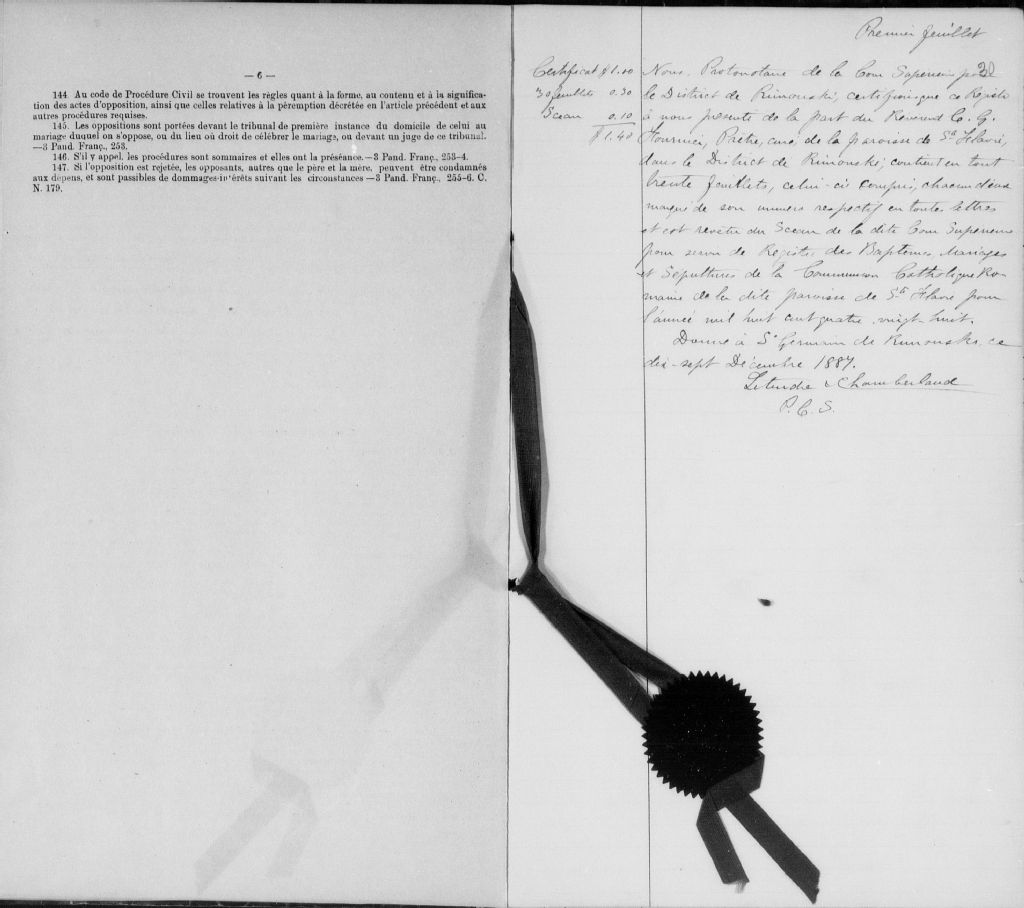 — 6 —
144. Au code de Procédure Civil se trouvent les règles quant à la forme, au contenu et à la significa-
tion des actes d'opposition, ainsi que celles relatives à la péremption décrétée en l'article précédent et aux
autres procédures requises.
145. Les oppositions sont portées devant le tribunal de première instance du domicile de celui au
mariage duquel on s'oppose, ou du lieu où droit de célébrer le mariage, ou devant un juge de ce tribunal.
—3 Pand. Franç., 253.
146. S'il y appel, les procédures sont sommaires et elles ont la préséance.—3 Pand. Franç., 253-4.
147. Si l'opposition est rejetée, les opposants, autres que le père et la mère, peuvent être condamnés
aux dépens, et sont passibles de dommages-intérêts suivant les circonstances—3 Pand. Franç., 255-6. C.
N. 179.
Premier feuillet
Certificat $1.00
30 feuillets 0.30
Sceau 0.10
$1.40
Nous, Protonotaire de la Cour Supérieure pour
le District de Rimouski, certifions que ce Registre
à nous présenté de la part du Révérend C. G.
Fournier, Prêtre, curé, de la paroisse de Ste Flavie,
dans le District de Rimouski, contient en tout
trente feuillets, celui-ci compris, chacun d'eux
marqué de son numéro respectif en toutes lettres
et est revêtu du Sceau de la dite Cour Supérieure
pour servir de Registre des Baptêmes, Mariages
et Sépultures de la Communion Catholique Ro-
maine de la dite paroisse de Ste Flavie pour
l'année mil huit cent quatre-vingt-huit.
Donné à St Germain de Rimouski, ce
dix-sept Décembre 1887.
Letendre & Chamberland
P. C. S.